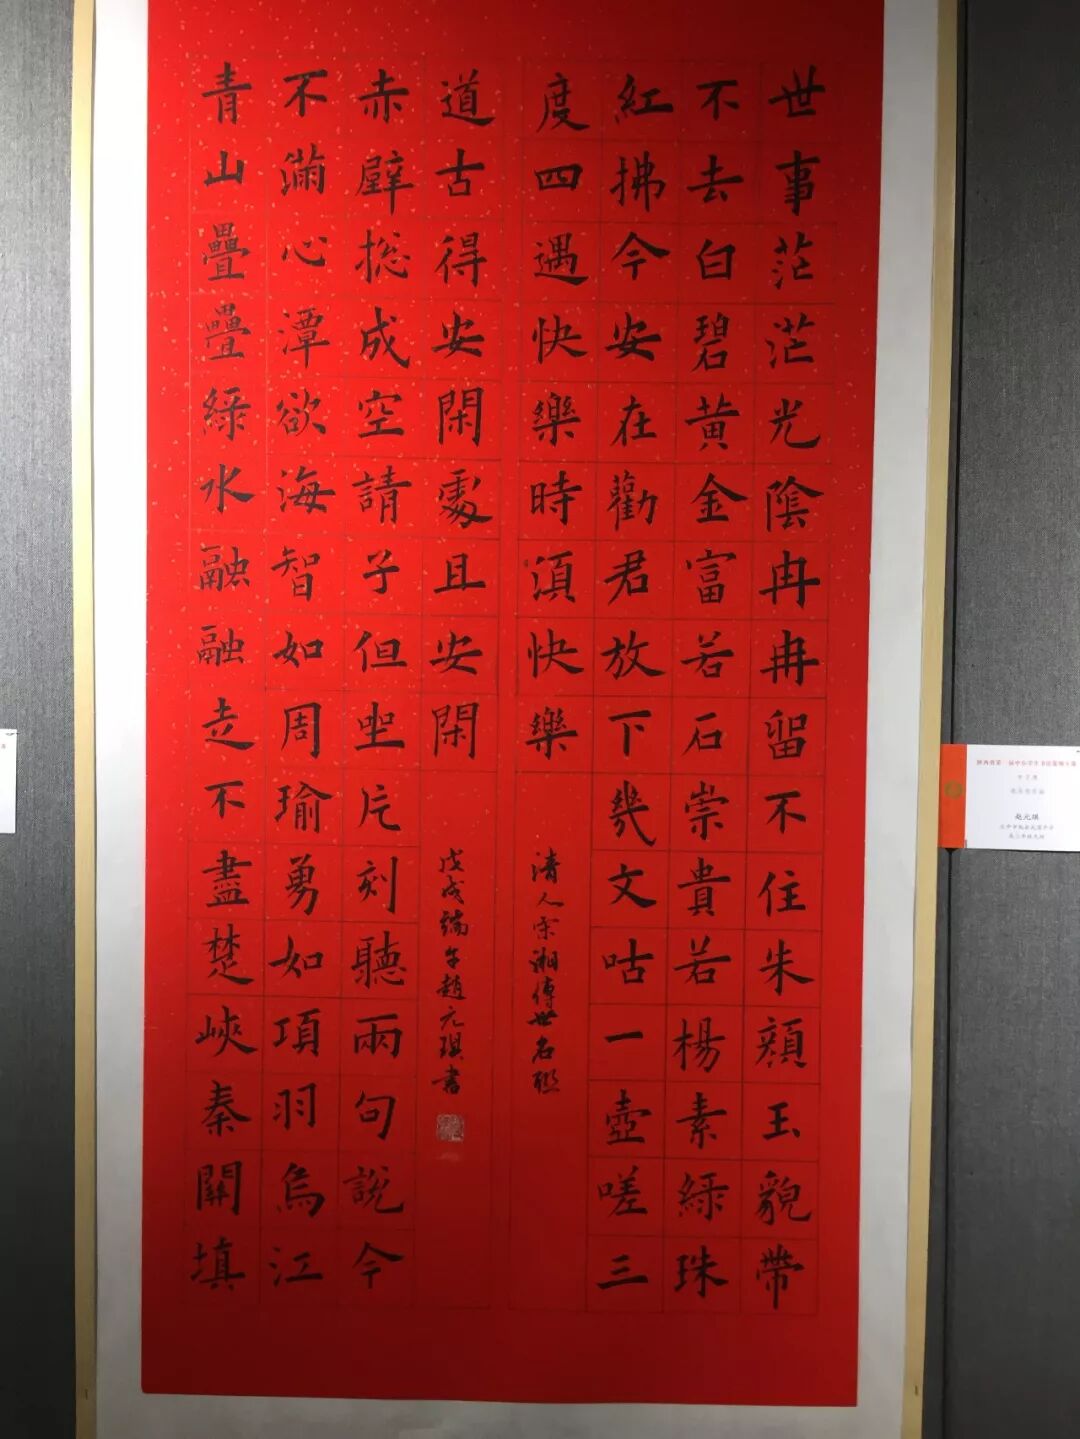 世事茫茫光陰冉冉留不住朱顔玉貌帶
不去白碧黃金富若石崇貴若楊素緑珠
紅拂今安在勸君放下幾文咕一壺嗟三
度四遇快樂時湏快樂
清人宋湘傳世名聯
青山疊疊緑水融融走不盡楚峽秦關填
不滿心潭欲海智如周瑜勇如項羽烏江
赤壁揔成空請子但坐片刻聽兩句說今
道古得安閑處且安閑
戊戌端午趙元琪書
赵元琪